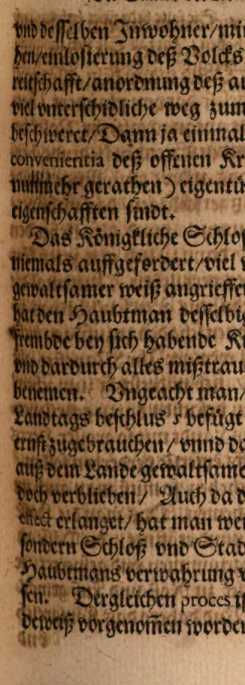 vnd desselben Inwohner/mit
hen/einlosierung deß Volcks
reitschafft/anordnung deß au
viel vnterschidliche weg zum
beschweret/Dann ja einmal
convenientia deß offenen Kr
nunmehr gerathen) eigentü
eigenschafften sindt.
Das Königkliche Schlos
niemals auffgefordert/viel
gewaltsamer weiß angrieffe
hat den Haubtman desselbig
frembde bey sich habende K
vnd dardurch alles mißtrau
benemen. Vngeacht man/
Landtags beschlus befügt
ernst zugebrauchen/ vnnd da
auß dem Lande gewaltsame
doch verblieben/ Auch da d
effect erlanget/ hat man wei
sondern Schloß vnd Stad
Haubtmans verwahrung
sen. Dergleichen proces i
deweiß vorgenom̃en worden